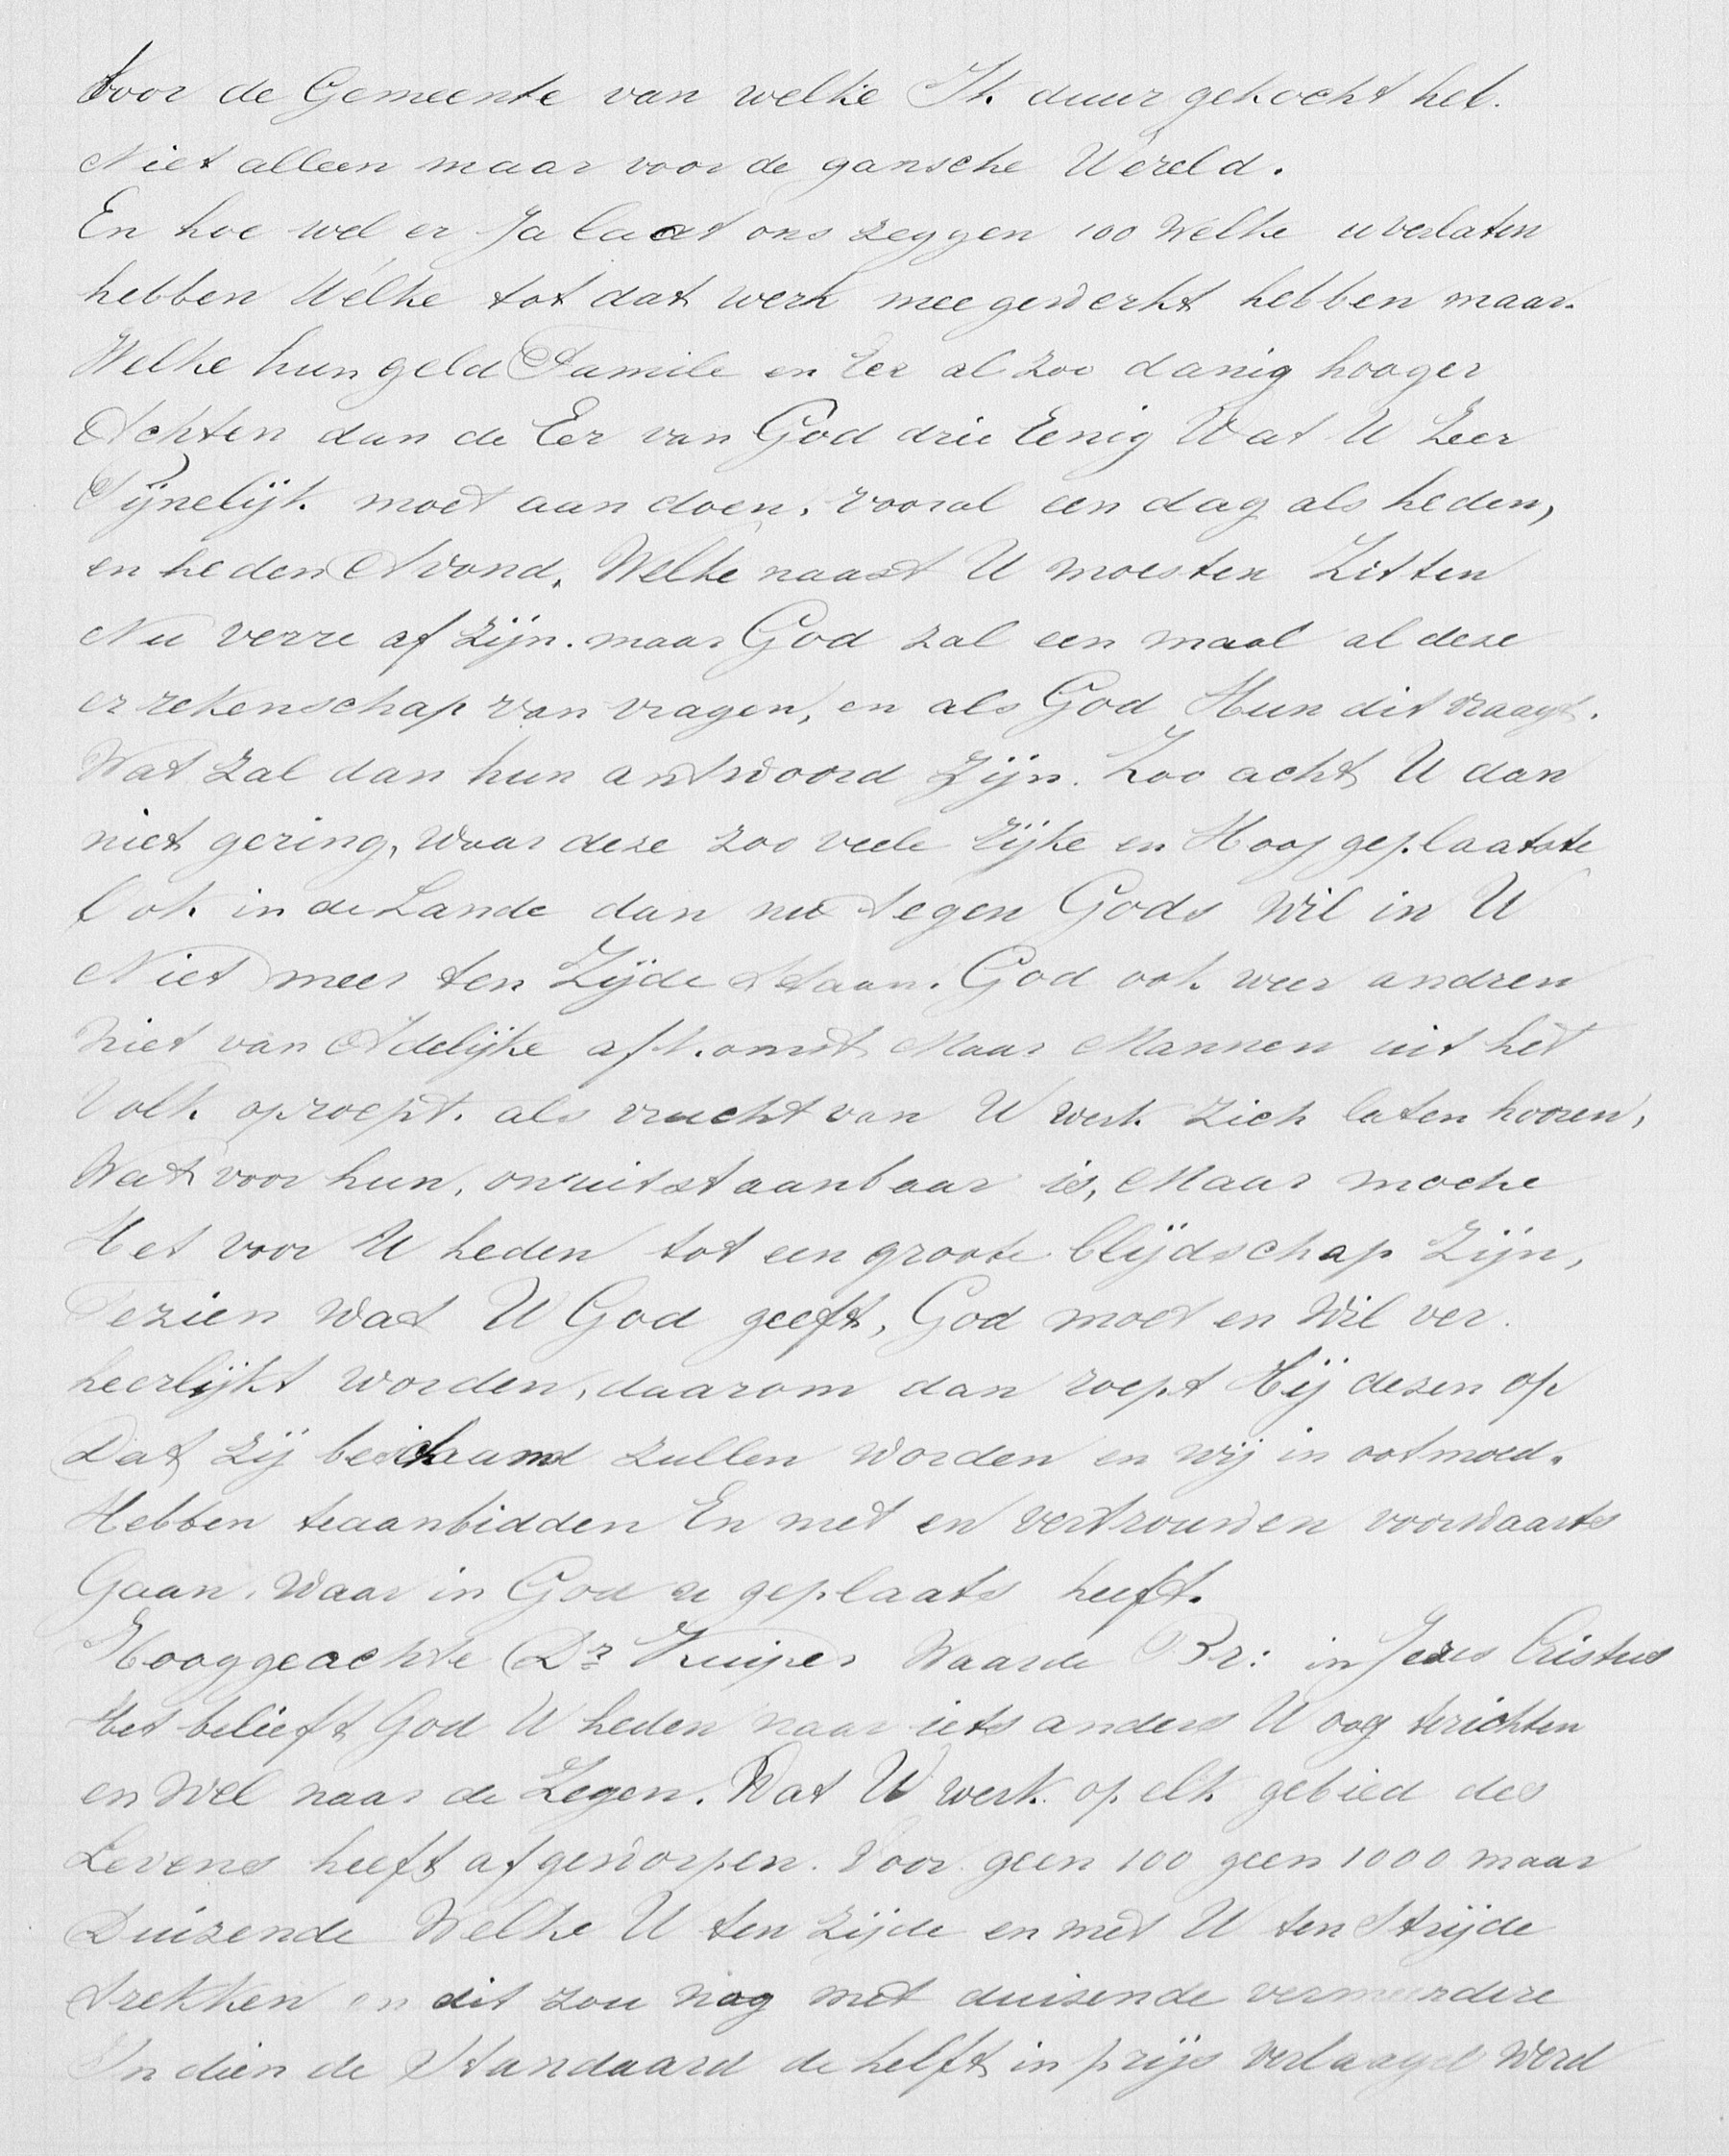 voor de Gemeente van welke Ik duur gekocht heb.
Niet alleen maar voor de gansche Wereld.
En hoe wel er Ja laat ons zeggen 100 Welke u verlaten
hebben Welke tot dat werk mee gewerkt hebben maar.
Welke hun geld Famile en Eer al zoo danig hooger
Achten dan de Eer van God drie Eenig Wat U Zeer
Pijnelijk moet aan doen, vooral een dag als heden,
en heden Avond. Welke naast U moesten Zitten
Nu verre af zijn. maar God zal een maal al deze
er rekenschap van vragen, en als God Hun dit vraagt.
Wat zal dan hun antwoord Zijn. Zoo acht U dan
niet gering, waar deze zoo veele Rijke en Hoog geplaatste
Ook in de Lande dan nu tegen Gods Wil in U
Niet meer ten Zijde Staan. God ook weer andren
Niet van Adelijke afkomst Maar Mannen uit het
Volk oproept. als vrucht van U werk Zich laten hooren,
Wat voor hun, onuitstaanbaar is, Maar moche
Het voor U heden tot een groote blijdschap Zijn,
Tezien Wat U God geeft, God moet en Wil ver.
heerlijkt worden, daarom dan roept Hij dezen op
Dat zij beschaamd zullen worden en wij in ootmoed.
Hebben teaanbidden En met en vertrouwen voorwaarts
Gaan. waar in God u geplaats heeft.
Hooggeachte Dr Kuiper Waarde Br: in Jezus Cristus
Het belieft God U heden naar iets anders U oog terichten
en Wel naar de Zegen. Wat U werk op elk gebied des
Levens heeft afgeworpen. Voor geen 100 geen 1000 maar
Duizende Welke U ten zijde en met U ten Strijde
trekken en dit zou nog met duizende vermeerdere
In dien de Standaard de helft in prijs verlaagd werd